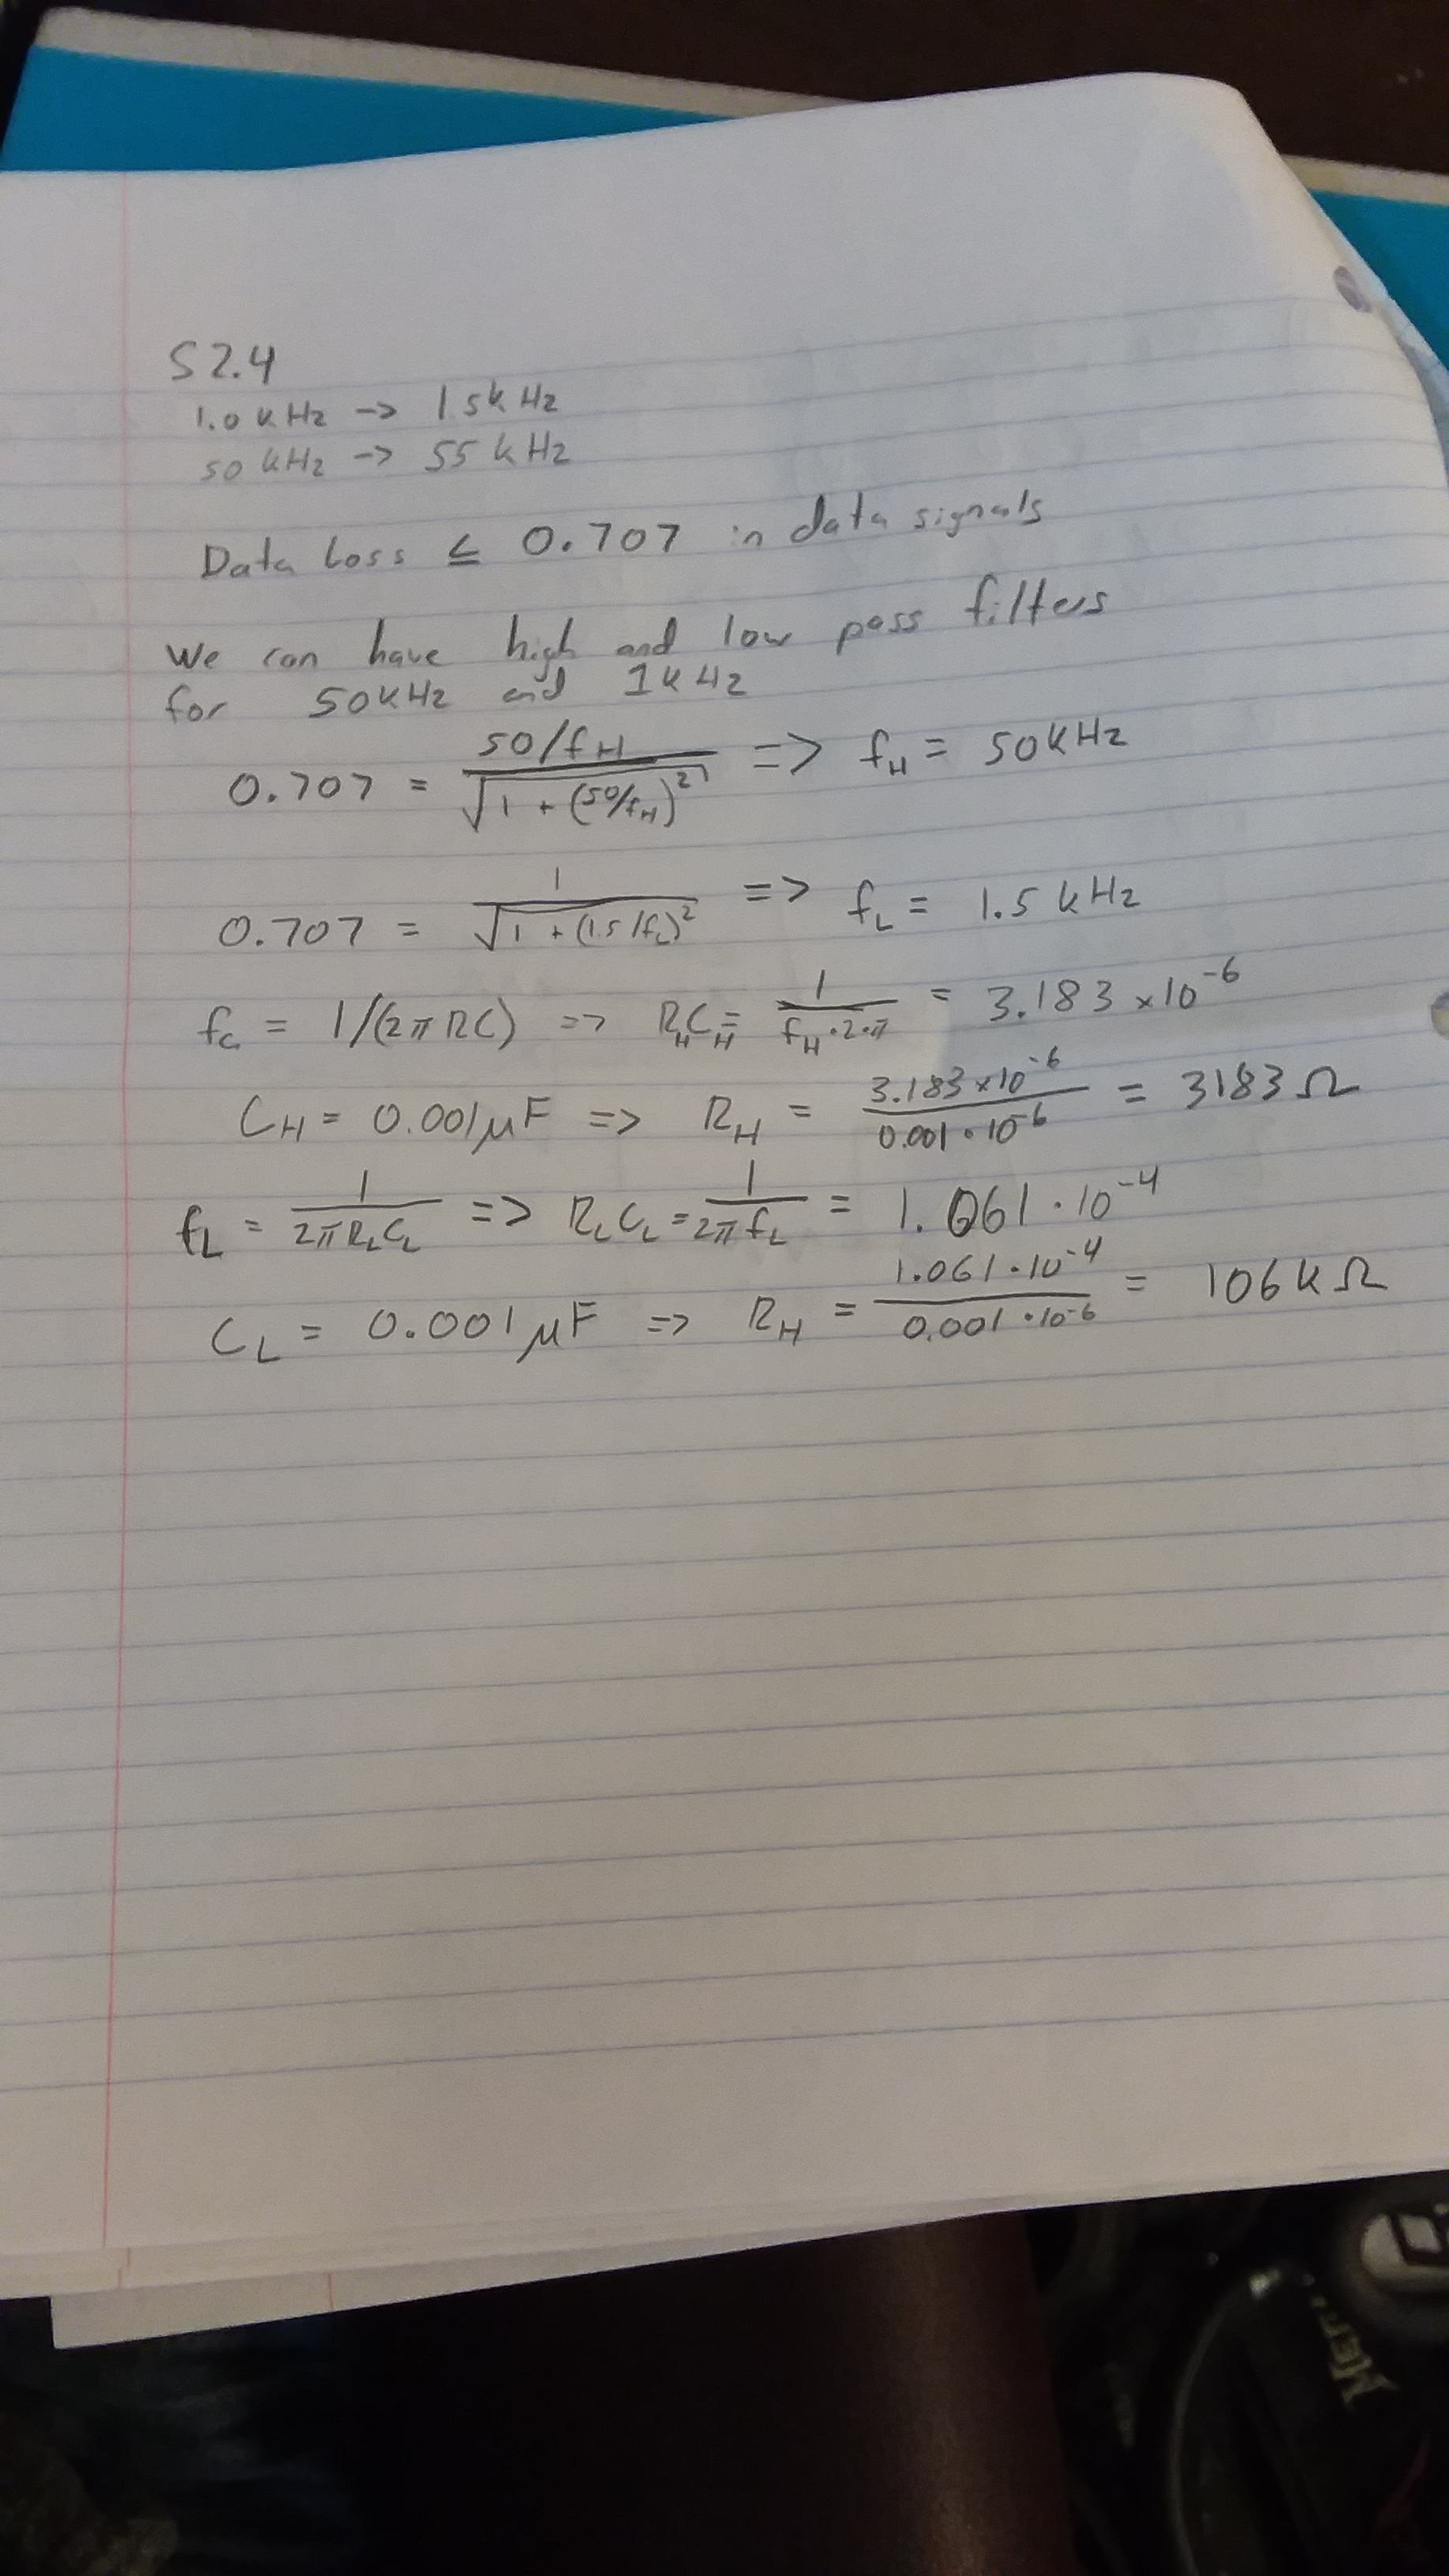 S2.4
1.0kHz → 1.5kHz
50kHz → 55kHz
Data loss ≤ 0.707 in data signals
We can have high and low pass filters
for 50kHz and 1kHz
0.707 = 50/fH / √(1 + (50/fH)²) => fH = 50kHz
0.707 = 1 / √(1 + (1.5/fL)²) => fL = 1.5kHz
fc = 1/(2πRC) => RHCH = 1 / (fH·2·π) = 3.183 × 10⁻⁶
CH = 0.001μF => RH = 3.183×10⁻⁶ / 0.001·10⁻⁶ = 3183Ω
fL = 1 / 2πRLCL => RLCL = 1 / 2πfL = 1.061·10⁻⁴
CL = 0.001μF => RH = 1.061·10⁻⁴ / 0.001·10⁻⁶ = 106kΩ